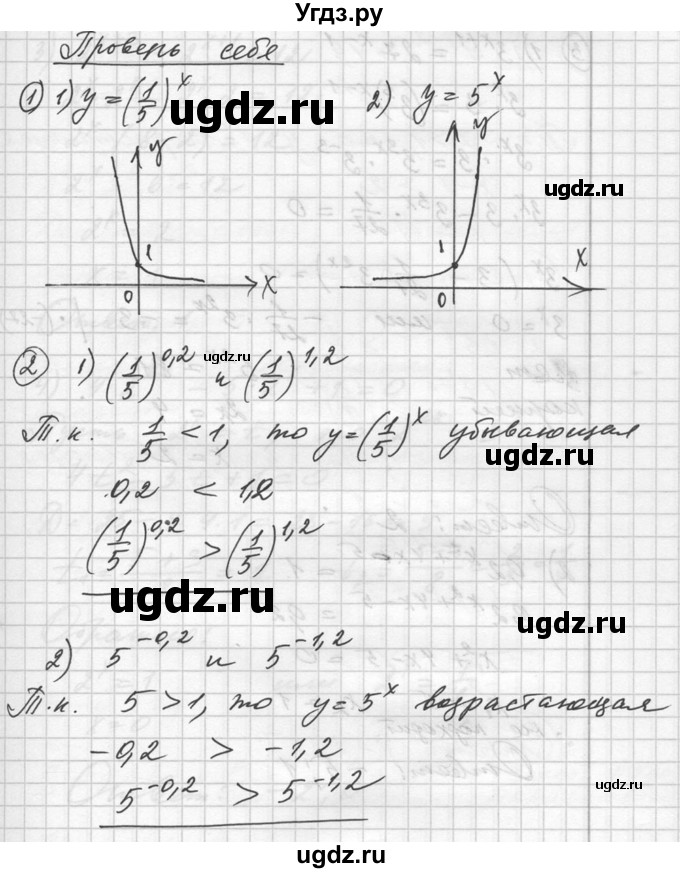 Угдз.ру
Проверь себя
① 1) y = (1/5)^x 2) y = 5^x
ugdz.ru
y y
ugdz.ru
1 1
0 x 0 x
② 1) (1/5)^0,2 и (1/5)^1,2
ugdz.ru
Т.к. 1/5 < 1, то y = (1/5)^x убывающая
ugdz.ru
0,2 < 1,2
(1/5)^0,2 > (1/5)^1,2
ugdz.ru
ugdz.ru
2) 5^-0,2 и 5^-1,2
Т.к. 5 > 1, то y = 5^x возрастающая
-0,2 > -1,2
ugdz.ru
ugdz.ru
5^-0,2 > 5^-1,2
ugdz.ru
ugdz.ru